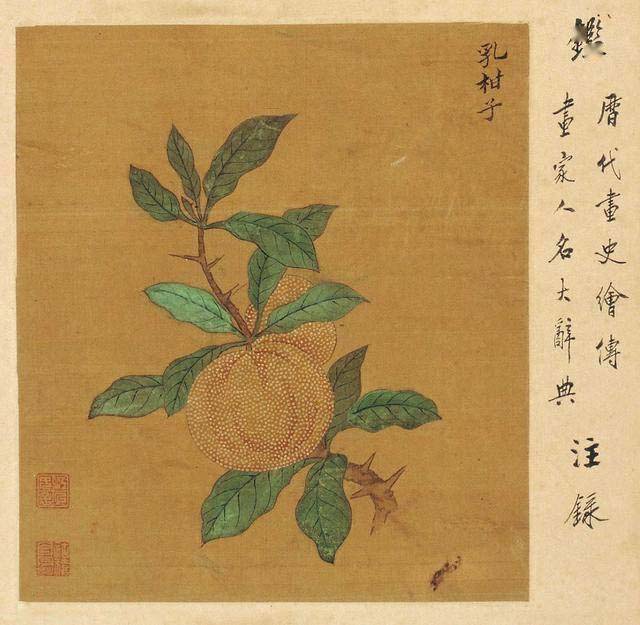 乳柑子
鑑
歷代畫史繪傳
畫家人名大辭典
注錄